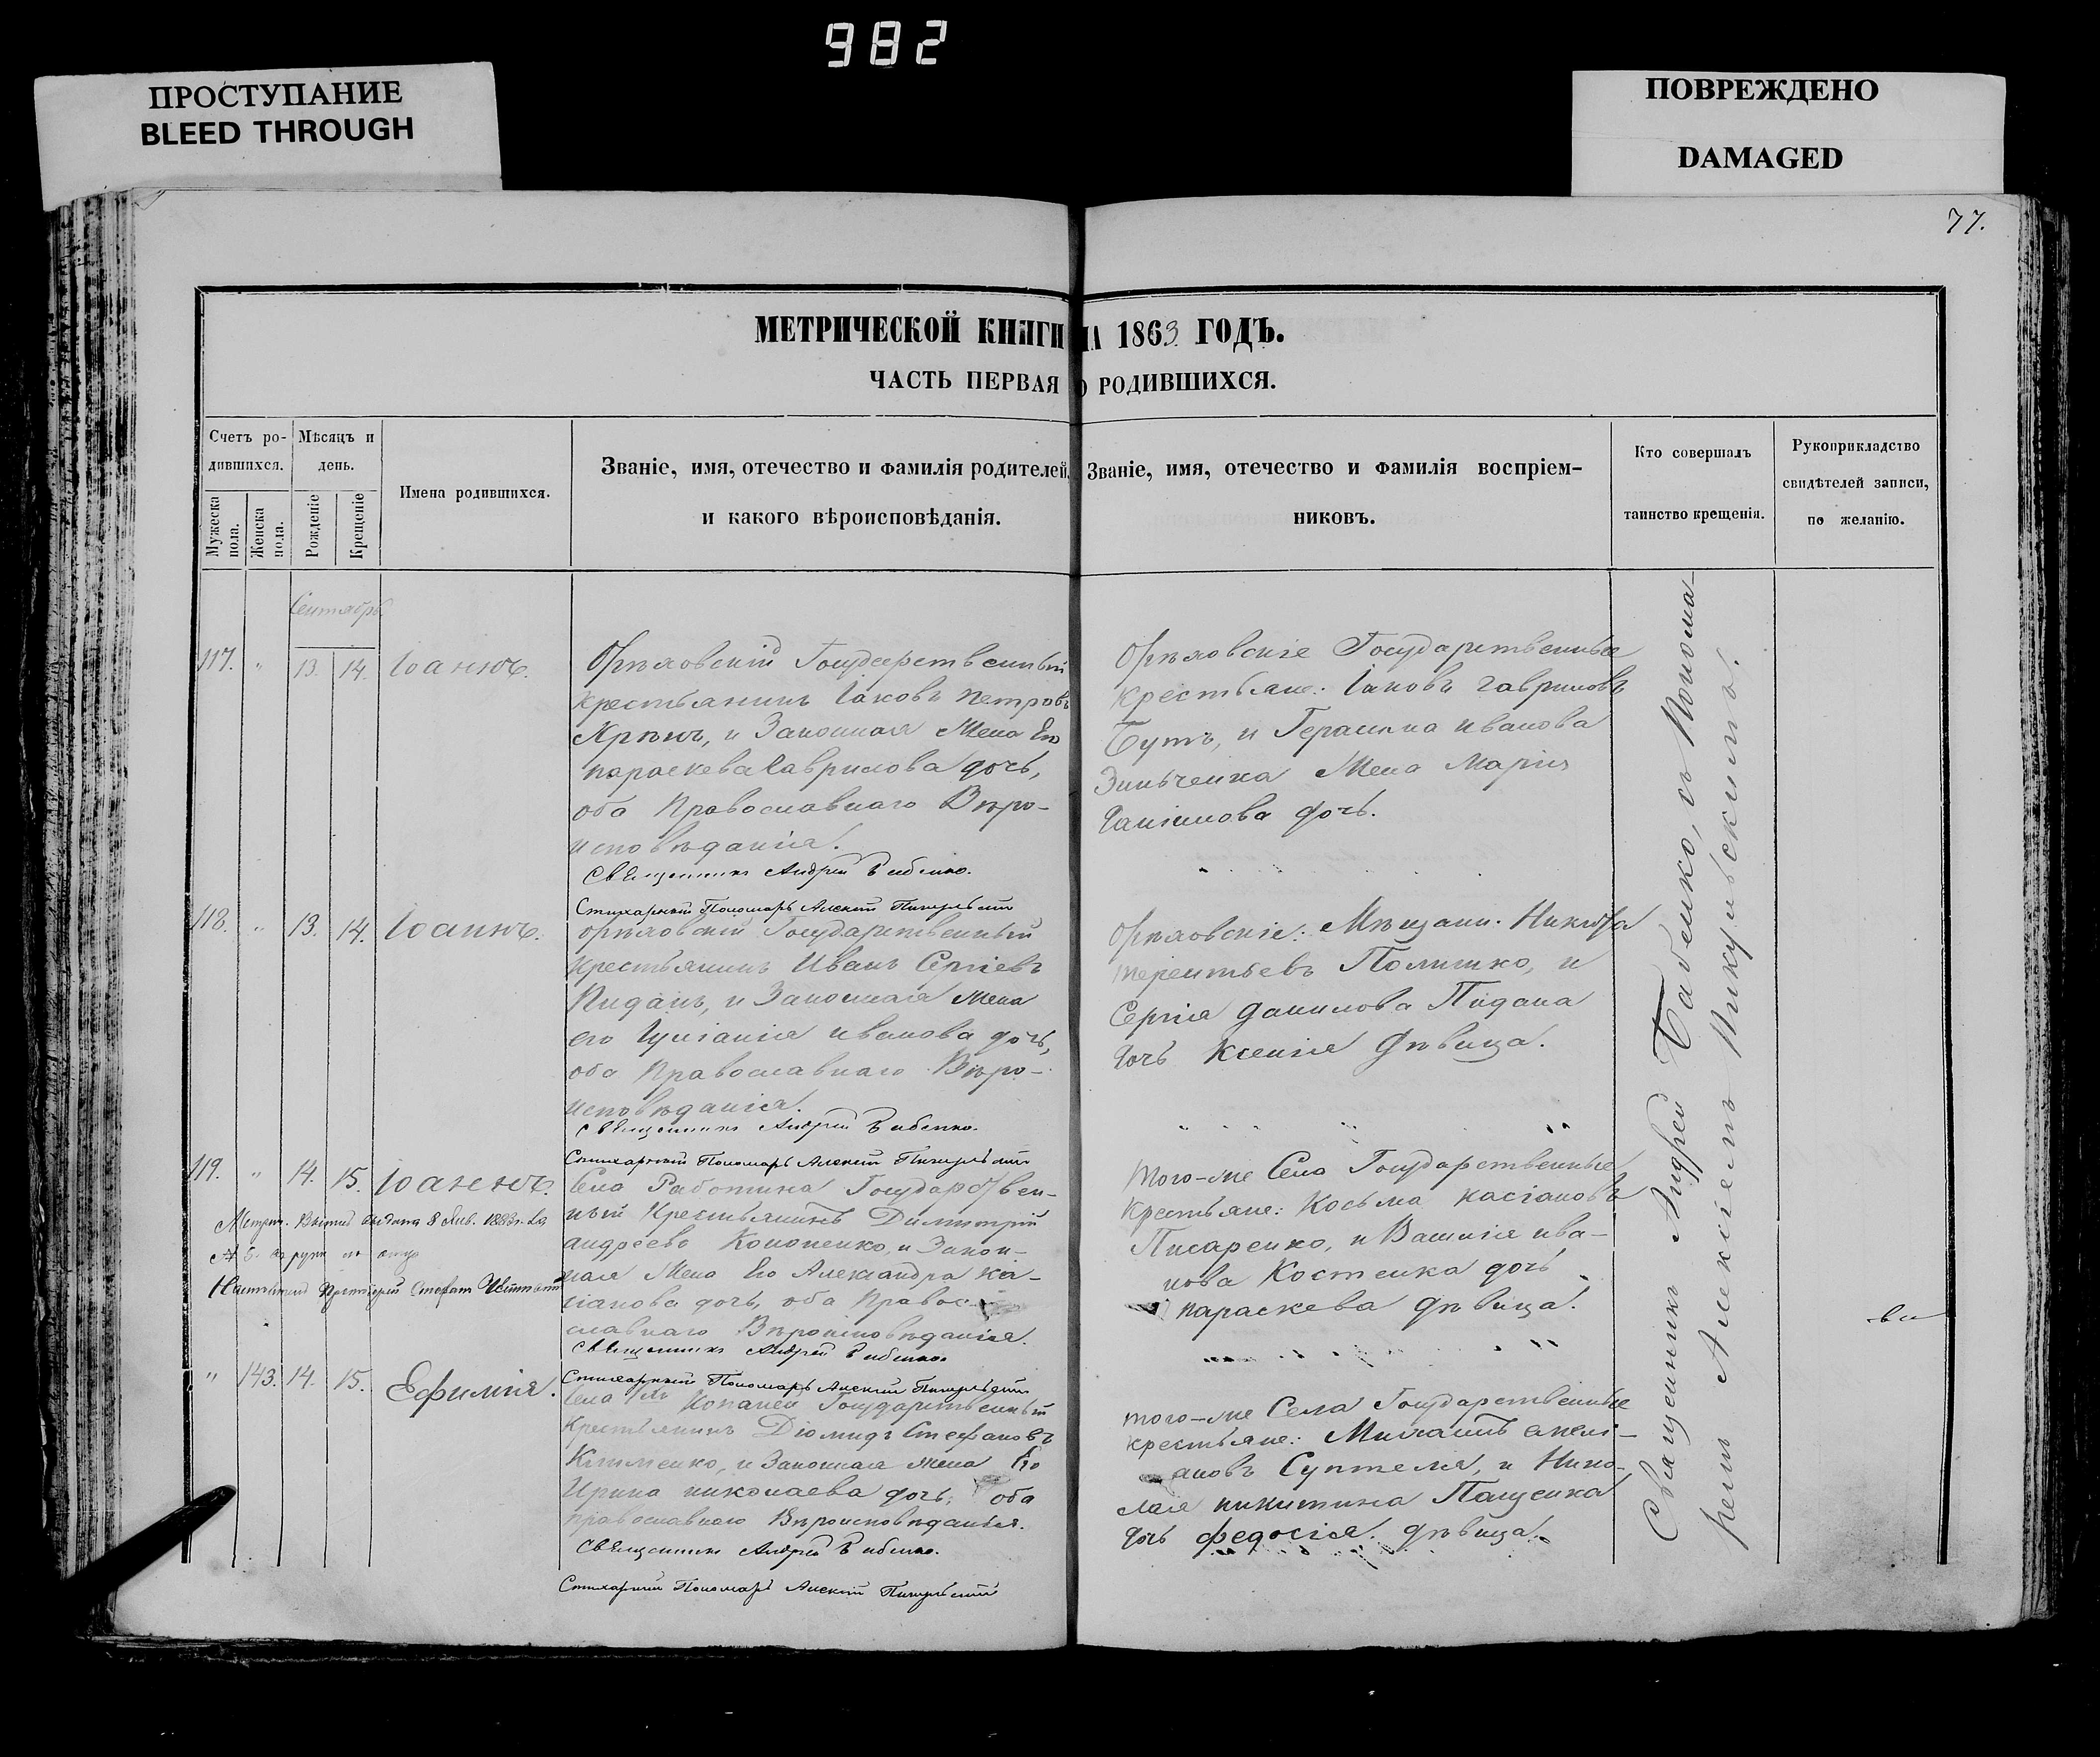 982
ПРОСТУПАНИЕ
BLEED THROUGH
ПОВРЕЖДЕНО
DAMAGED
77.
МЕТРИЧЕСКОЙ КНИГИ НА 1863 ГОДЪ.
ЧАСТЬ ПЕРВАЯ О РОДИВШИХСЯ.
Счетъ ро-
дившихся.
Мужеска пола.
Женска пола.
Мѣсяцъ и
день.
Рожденіе
Крещеніе
Имена родившихся.
Званіе, имя, отечество и фамилія родителей,
и какого вѣроисповѣданія.
Званіе, имя, отечество и фамилія воспріем-
никовъ.
Кто совершалъ
таинство крещенія.
Рукоприкладство
свидѣтелей записи,
по желанію.
Сентябрь
117. " 13. 14. Іоаннъ.
Орѣховскій Государственный
крестьянинъ Іаковъ Петровъ
и Законная Жена Его
Параскева Гаврилова дочь,
оба Православнаго Вѣро-
исповѣданія.
Священникъ Андрей Бабенко.
Стихарный Пономарь Алексій
Орѣховскіе Государственные
крестьяне: Іаковъ Гавриловъ
Бутъ, и Герасима Иванова
Зинченка Жена Марія
дочь.
118. " 13. 14. Іоаннъ.
Орѣховскій Государственный
Крестьянинъ Иванъ Сергіевъ
Пиданъ, и Законная Жена
его Іуліанія Иванова дочь,
оба Православнаго Вѣро-
исповѣданія.
Священникъ Андрей Бабенко.
Стихарный Пономарь Алексій
Орѣховскіе: Мѣщани. Никифо
Терентьевъ и
Сергія Данилова Пидана
дочь Ксенія Дѣвица.
119. " 14. 15. Іоаннъ.
Села Работина Государствен-
ный Крестьянинъ Димитрій
Андреевъ Кононенко, и Закон-
ная Жена Его Александра Ка-
сіанова дочь, оба Правос-
славнаго Вѣроисповѣданія.
Священникъ Андрей Бабенко.
Стихарный Пономарь Алексій
Того-же Села Государственные
Крестьяне: Косьма Касіановъ
Писаренко, и Ива-
нова Костенка дочь
Параскева Дѣвица.
Метрич. выпис выдана 8 Янв. 1883 г. за
№ 5. на руки
Протоіерей Стефанъ
" 143. 14. 15. Ефимія.
Села Копаней Государственный
Крестьянинъ Діомидъ Стефановъ
Клименко, и Законная Жена Его
Ирина Николаева дочь, оба
Православнаго Вѣроисповѣданія.
Священникъ Андрей Бабенко.
Стихарный Пономарь Алексій
того-же Села Государственные
крестьяне: Михаилъ
и Нико-
лая Никитина Пащенка
дочь Федосія. Дѣвица.
Священникъ Андрей Бабенко, съ Понома-
ремъ Алексіемъ